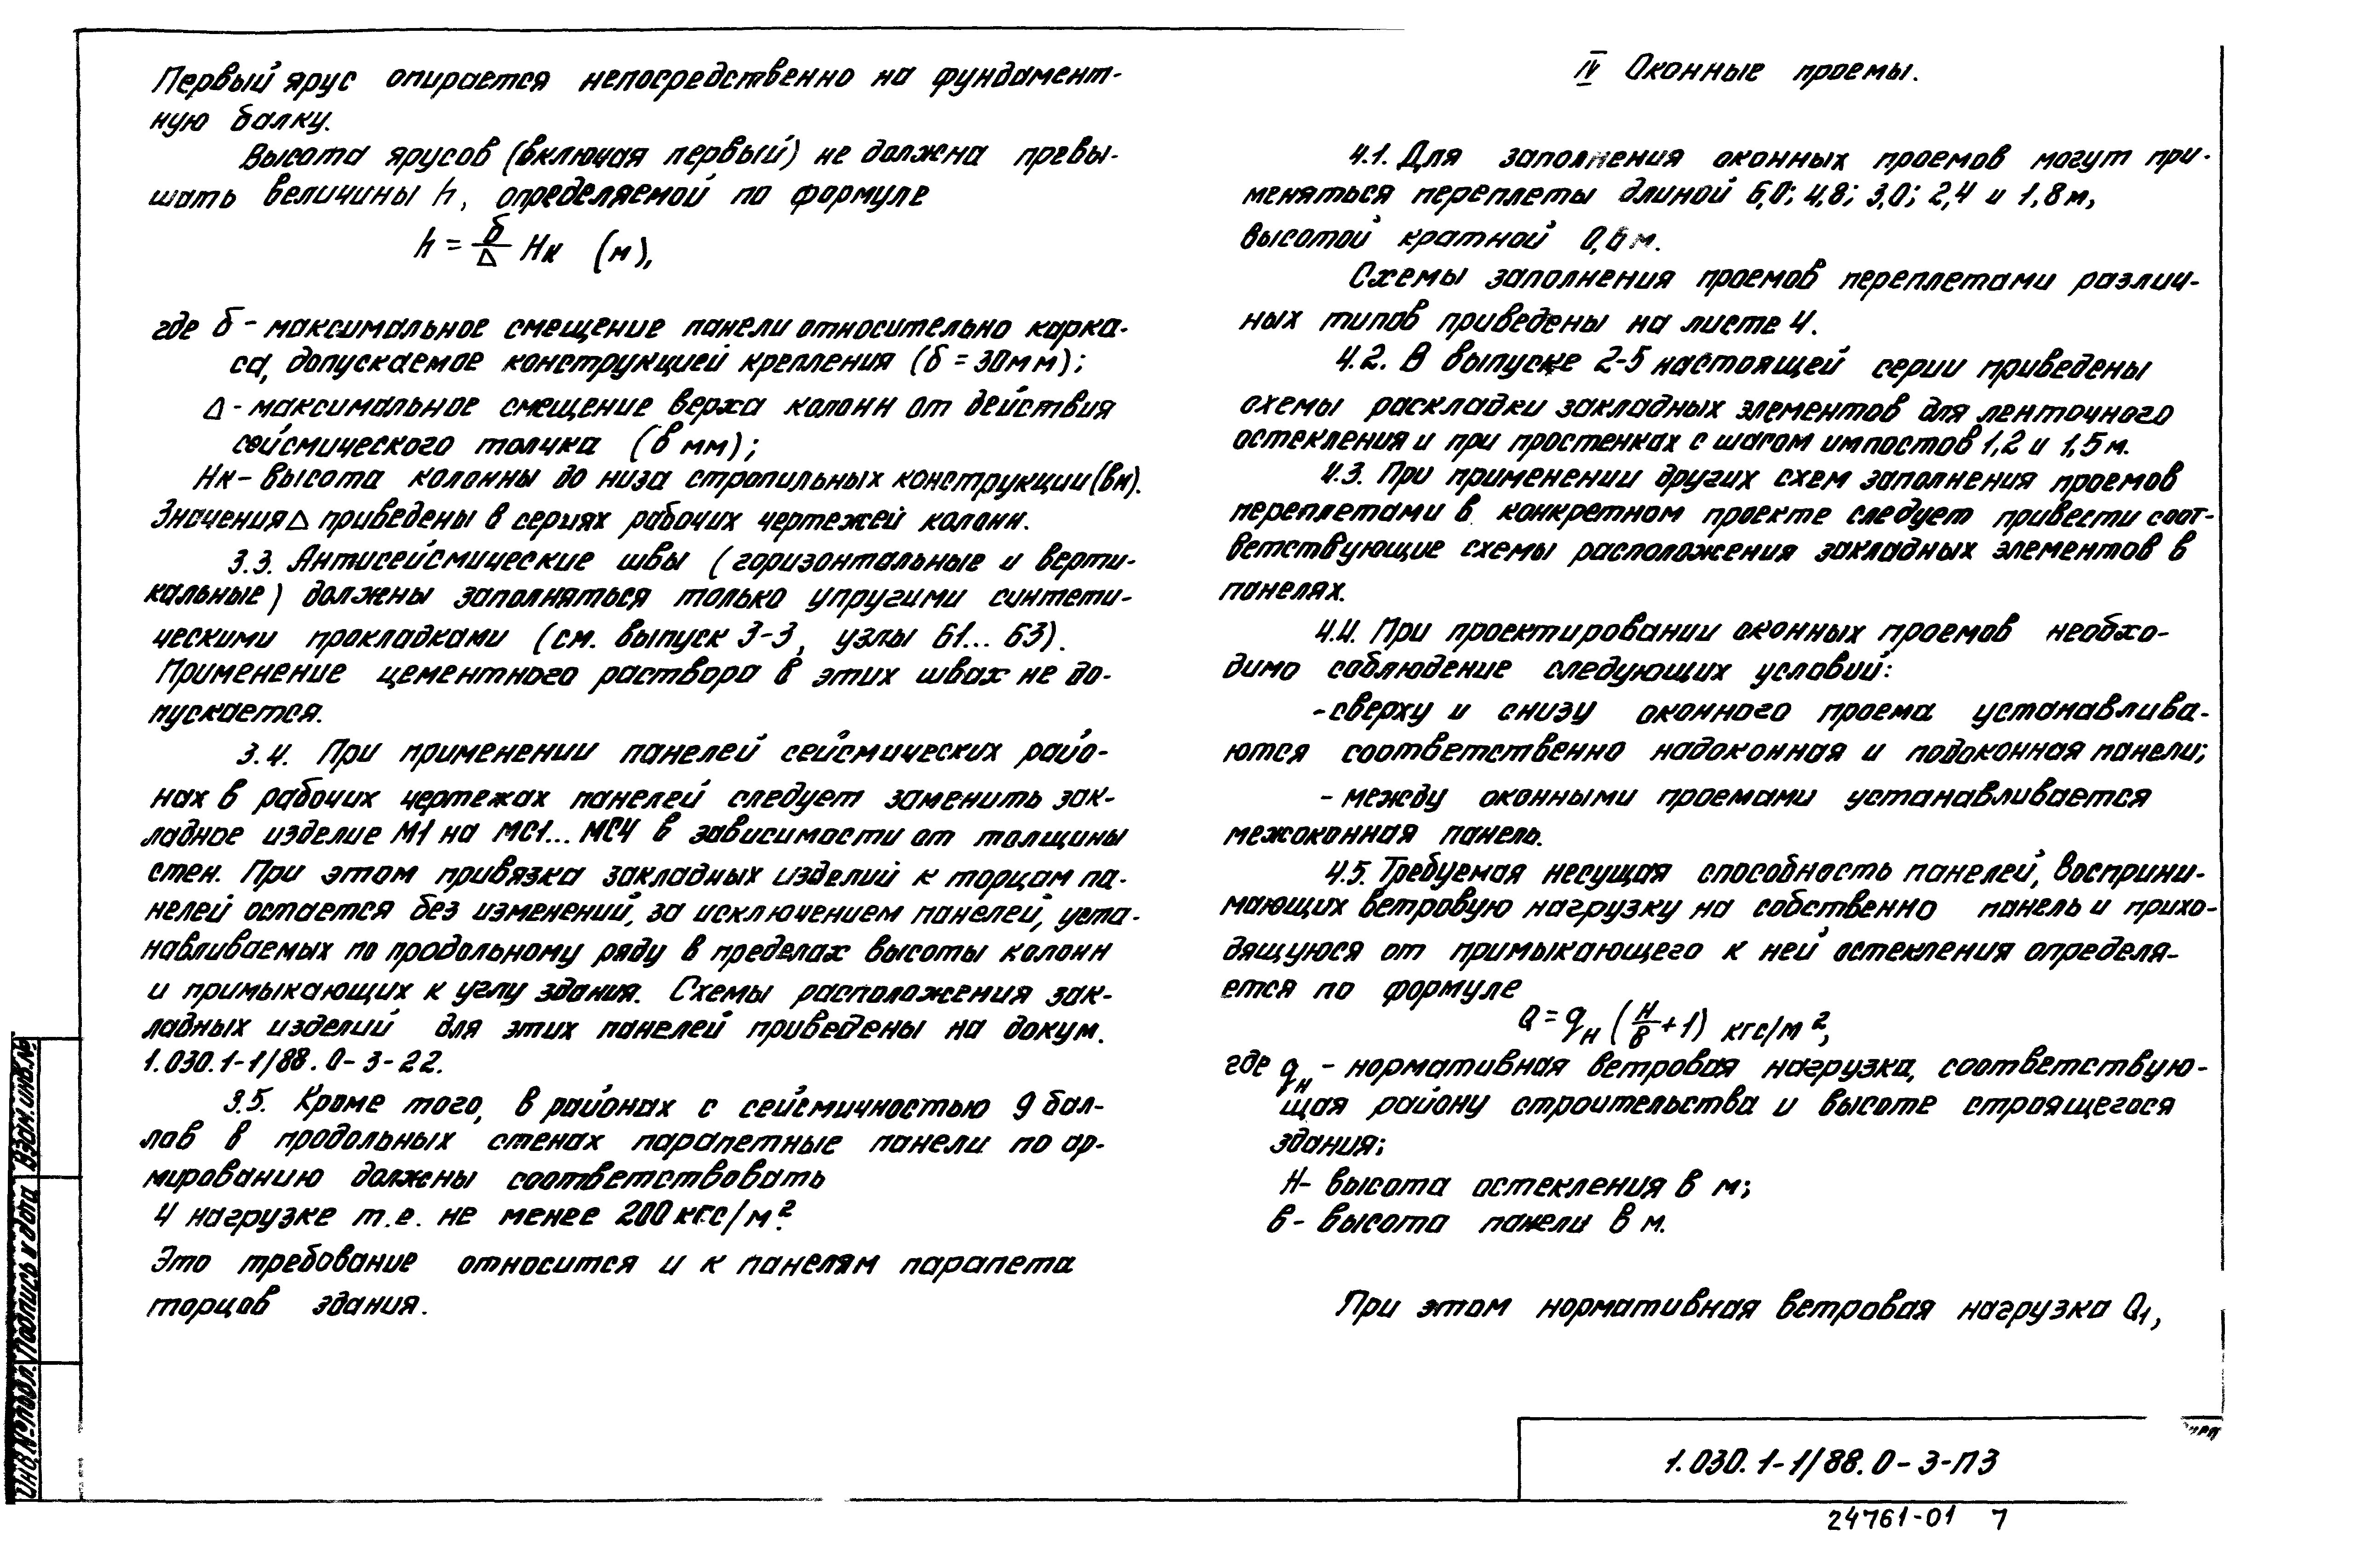 Первый ярус опирается непосредственно на фундамент-
ную балку.
Высота ярусов (включая первый) не должна превы-
шать величины h, определяемой по формуле
h = δ/Δ Нк (м),
где δ - максимальное смещение панели относительно карка-
са, допускаемое конструкцией крепления (δ = 30мм);
Δ - максимальное смещение верха колонн от действия
сейсмического толчка (в мм);
Нк - высота колонны до низа стропильных конструкции (вм).
Значения Δ приведены в сериях рабочих чертежей колонн.
3.3. Антисейсмические швы (горизонтальные и верти-
кальные) должны заполняться только упругими синтети-
ческими прокладками (см. выпуск 3-3, узлы 61... 63).
Применение цементного раствора в этих швах не до-
пускается.
3.4. При применении панелей сейсмических райо-
нах в рабочих чертежах панелей следует заменить зак-
ладное изделие М1 на МС1... МС4 в зависимости от толщины
стен. При этом привязка закладных изделий к торцам па-
нелей остается без изменений, за исключением панелей, уста-
навливаемых по продольному ряду в пределах высоты колонн
и примыкающих к углу здания. Схемы расположения зак-
ладных изделий для этих панелей приведены на докум.
1.030.1-1/88.0-3-22.
3.5. Кроме того, в районах с сейсмичностью 9 бал-
лов в продольных стенах парапетные панели по ар-
мированию должны соответствовать
4 нагрузке т.е. не менее 200 кгс/м².
Это требование относится и к панелям парапета
торцов здания.
IV Оконные проемы.
4.1. Для заполнения оконных проемов могут при-
меняться переплеты длиной 6,0; 4,8; 3,0; 2,4 и 1,8 м,
высотой кратной 0,6 м.
Схемы заполнения проемов переплетами различ-
ных типов приведены на листе 4.
4.2. В выпуске 2-5 настоящей серии приведены
схемы раскладки закладных элементов для ленточного
остекления и при простенках с шагом импостов 1,2 и 1,5 м.
4.3. При применении других схем заполнения проемов
переплетами в конкретном проекте следует привести соот-
ветствующие схемы расположения закладных элементов в
панелях.
4.4. При проектировании оконных проемов необхо-
димо соблюдение следующих условий:
- сверху и снизу оконного проема устанавлива-
ются соответственно надоконная и подоконная панели;
- между оконными проемами устанавливается
межоконная панель.
4.5. Требуемая несущая способность панелей, восприни-
мающих ветровую нагрузку на собственно панель и прихо-
дящуюся от примыкающего к ней остекления определя-
ется по формуле
Q = qн (Н/в + 1) кгс/м²,
где qн - нормативная ветровая нагрузка, соответствую-
щая району строительства и высоте строящегося
здания;
Н - высота остекления в м;
в - высота панели в м.
При этом нормативная ветровая нагрузка Q1,
1.030.1-1/88.0-3-ПЗ
24761-01 7
Взам. инв. №
Подпись и дата
Инв. № подл.